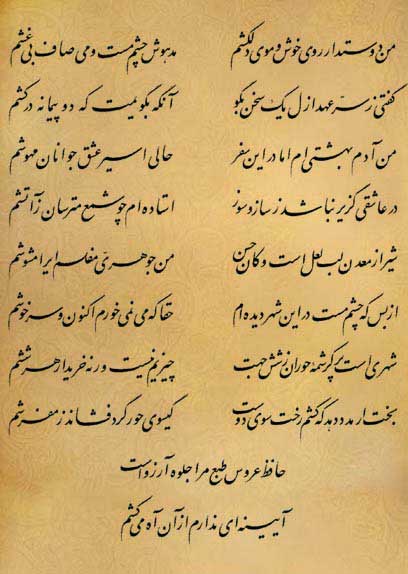 من دوستدار روی خوش و موی دلکشم مدهوش چشم مست و می صاف بی غشم
گفتی ز سرّ عهد ازل یک سخن بگو آنگه بگویمت که دو پیمانه درکشم
من آدم بهشتی ام اما در این سفر حالی اسیر عشق جوانان مهوشم
در عاشقی گزیر نباشد ز ساز و سوز استاده ام چو شمع مترسان ز آتشم
شیراز معدن لب لعل است و کان حسن من جوهری مفلسم ایرا مشوشم
از بس که چشم مست در این شهر دیده ام حقا که می نمی خورم اکنون و سرخوشم
شهری است پر کرشمه حوران ز شش جهت چیزیم نیست ورنه خریدار هر ششم
بخت ار مدد دهد که کشم رخت سوی دوست گیسوی حور گرد فشاند ز مفرشم
حافظ عروس طبع مرا جلوه آرزوست
آیینه ای ندارم از آن آه می کشم